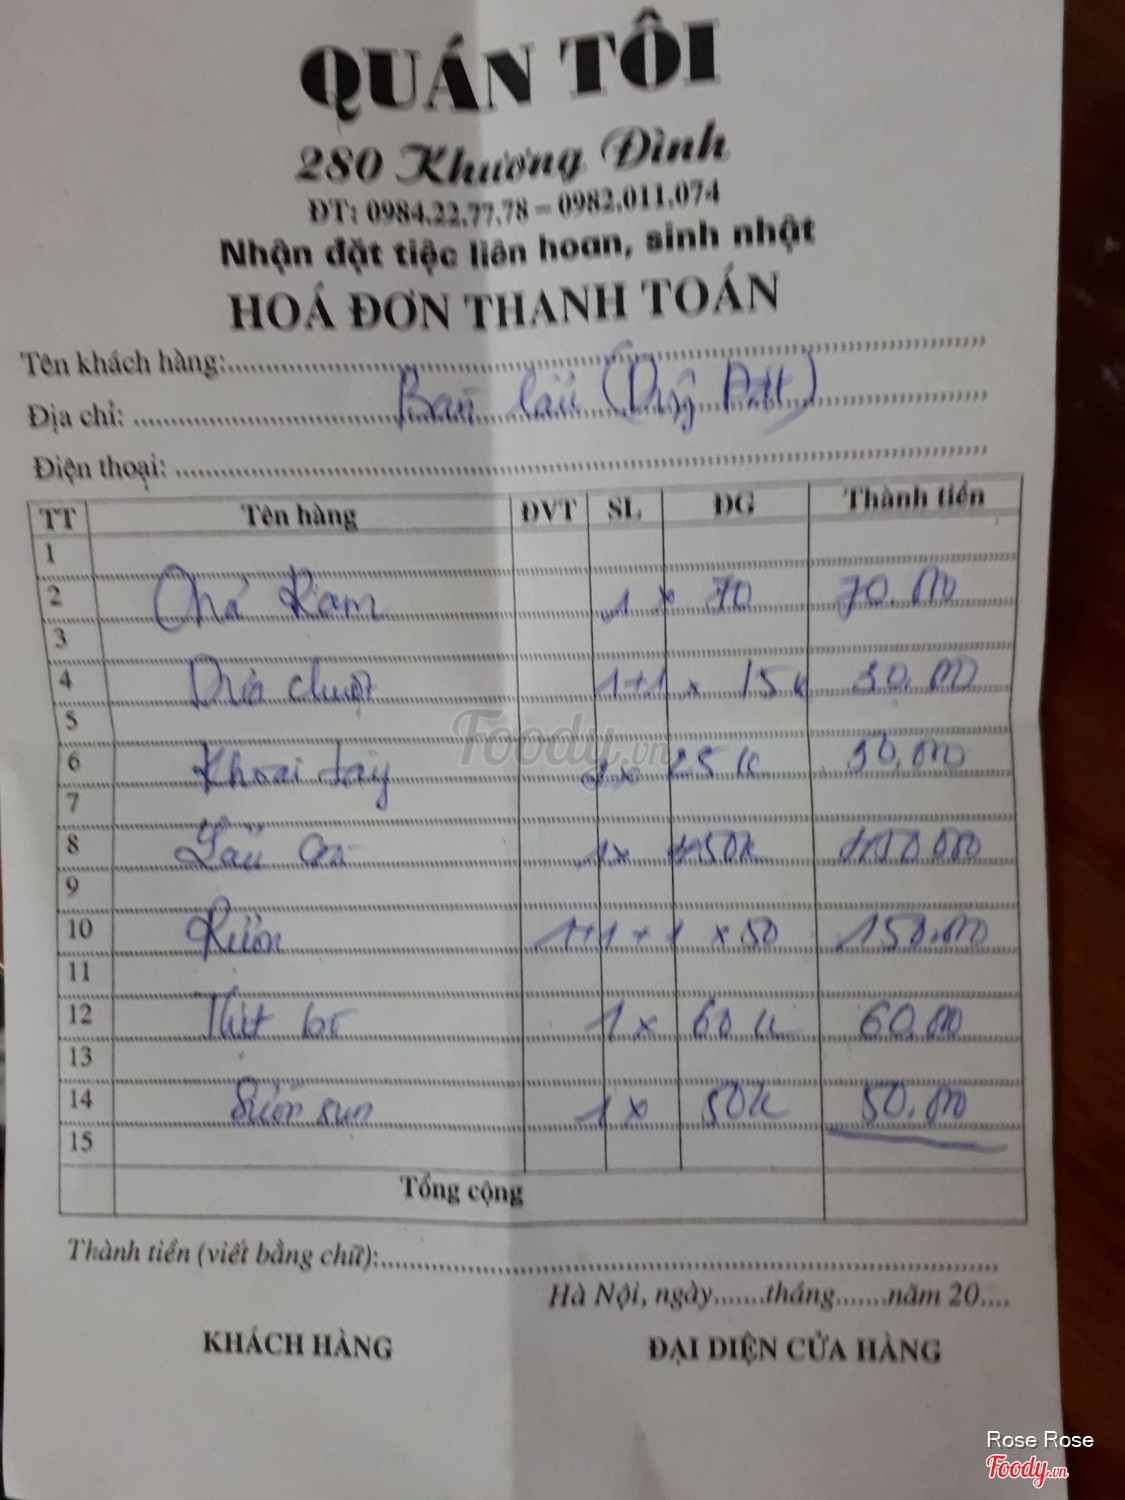 QUÁN TÔI
280 Khương Đình
ĐT: 0984.22.77.78 – 0982.011.074
Nhận đặt tiệc liên hoan, sinh nhật
HOÁ ĐƠN THANH TOÁN
Tên khách hàng:
Địa chỉ:
Điện thoại:
TT Tên hàng ĐVT SL ĐG Thành tiền
1
2 Chả Ram 1 x 70 70.000
3
4 Dưa chuột 1+1 x 15k 30.000
5
6 Khoai tây 2x 25k 50.000
7
8 Lẩu 1x
9
10 Rượu 1+1+1 x 50 150.000
11
12 Thịt bò 1 x 60k 60.000
13
14 Sườn sụn 1x 50k 50.000
15
Tổng cộng
Thành tiền (viết bằng chữ):
Hà Nội, ngày.......tháng.......năm 20....
KHÁCH HÀNG ĐẠI DIỆN CỬA HÀNG
Foody.vn
Rose Rose
Foody.vn